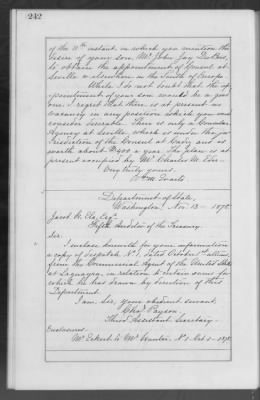 242
of the 11th instant in which you mention the
desire of your son, Mr. John Jay
to obtain the appointment of Consul at
Seville or elsewhere in the South of Europe.
While I do not doubt that the ap-
pointment of your son would be a good
one, I regret that there is at present no
vacancy in any position which you would
consider desirable. There is only a Consular
Agency at Seville, which is under the ju-
risdiction of the Consul at Cadiz and is
worth about $400 a year. The place is at
present occupied by Mr. Charles M.
Very truly yours,
Wm M. Evarts
Department of State,
Washington, Nov. 13 - 1878
Jacob H. Ela, Esq.
Fifth Auditor of the Treasury.
Sir:
I enclose herewith for your information
a copy of dispatch No. 1, dated October ultimo
from the Commercial Agent of the United States
at Laguayra, in relation to certain sums for
which he has drawn by direction of this
Department.
I am, Sir, your obedient servant,
Chas. Payson.
Third Assistant Secretary.
Enclosure:
Mr. to Mr. No. 1 - Oct. - 1878